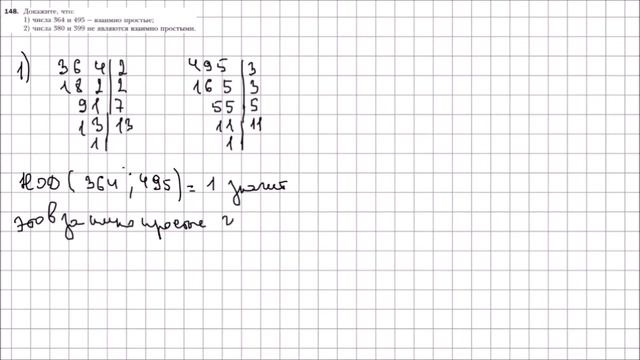 148. Докажите, что:
1) числа 364 и 495 – взаимно простые;
2) числа 380 и 399 не являются взаимно простыми.
1) 364 | 2 495 | 3
182 | 2 165 | 3
91 | 7 55 | 5
13 | 13 11 | 11
1 | 1 |
НОД (364 ; 495) = 1 значит
это взаимно простые ч